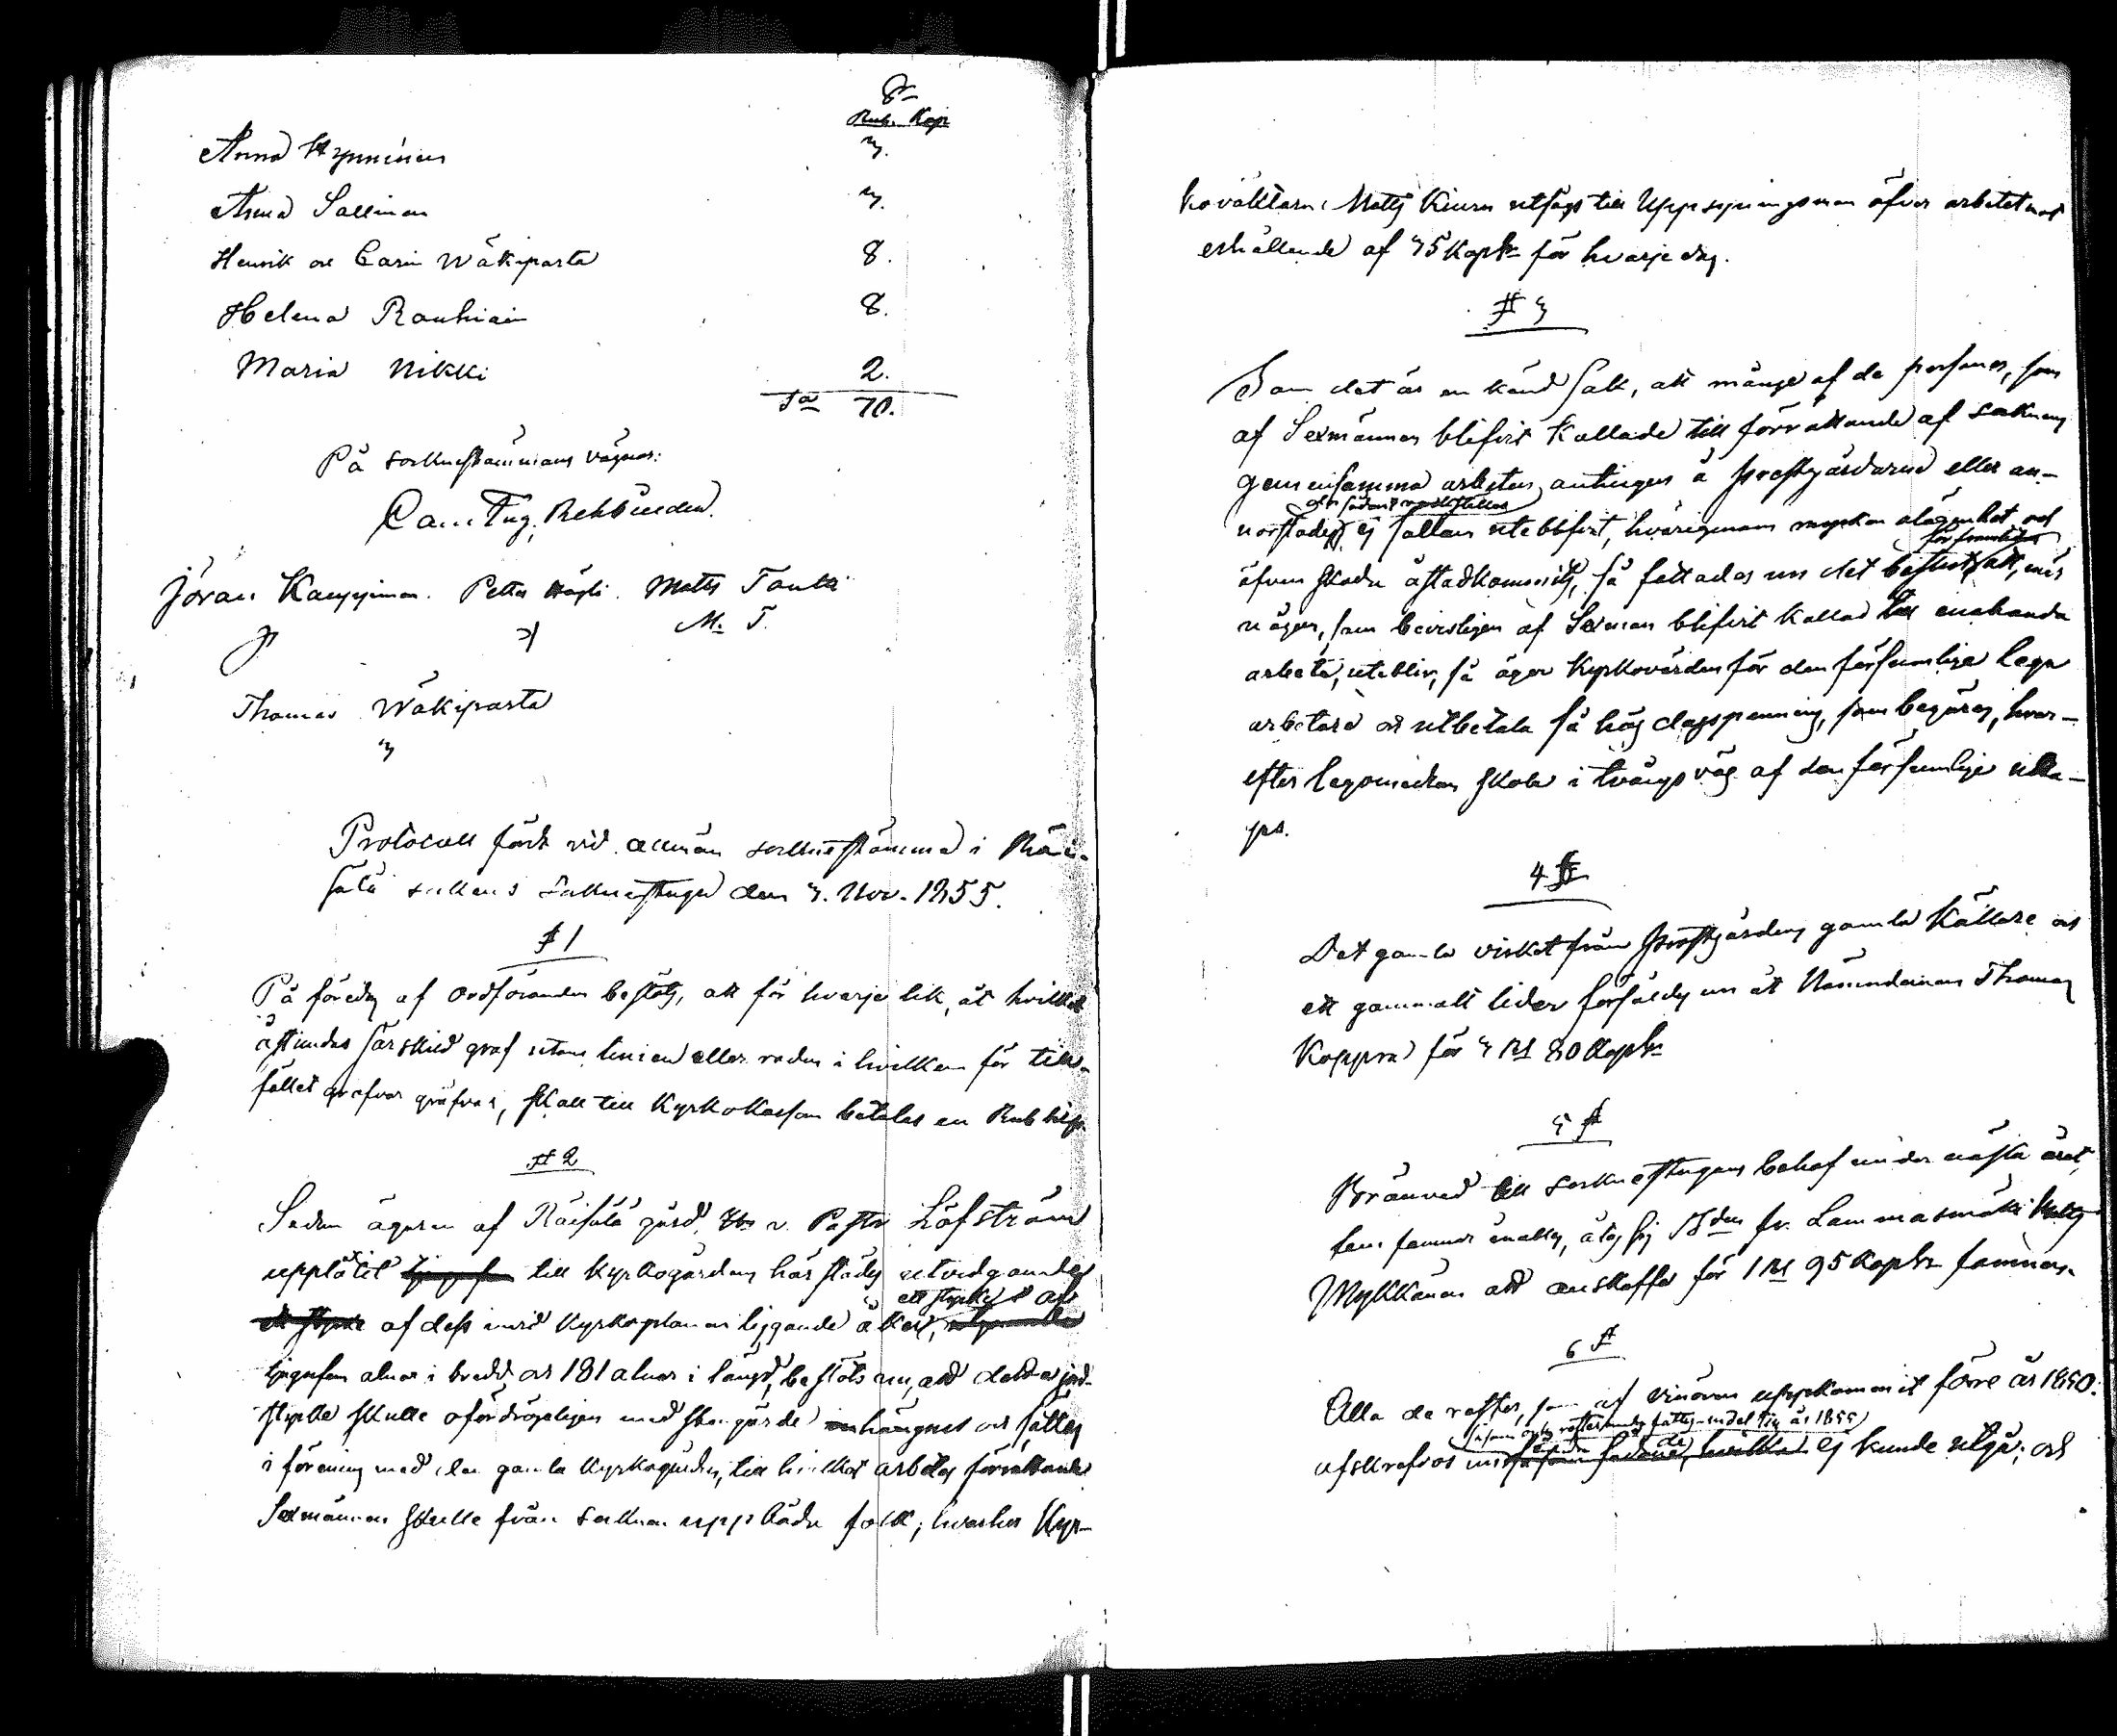 Rub. Kop
Anna Hynninen 3.
Anna Sallinen 3.
Henrik och Carin Wäkiparta 8.
Helena Rauhiain 8.
Maria Nikki 2.
S:a 70.
På sockenstämmans vägnar:
Carl Aug. Rehbinder.
Jöran Kauppinen. Petter Mats Tantti
M. T.
Thomas Wäkiparta
Protocoll fördt vid allmän sockenstämma i Räi-
sälä sockens Sockenstuga den 3. Nov. 1855.
§ 1
På föredrag af Ordföranden beslöts, att för hvarje lik, åt hvilket
åstundas särskild graf utom linien eller raden i hvilken för till-
fället grafvar gräfvas, skall till Kyrkokassan betalas en Rub Silfr.
§ 2
Sedan ägaren af Räisälä gård, v. Pastor Löfström
upplåtit till Kyrkogårdens härstädes utvidgande
ett stycke af
af dess invid Kyrkoplanen liggande åker,
tjugufem alnar i bredd och 181 alnar i längd, beslöts nu, att detta jord-
stycke skulle ofördröjeligen med stengärde inhängnas och sättas
i förening med den gamla Kyrkogården, till hvilket arbetes förrättande
Sexmännen skulle från socknen uppbåda folk; hvarhos Kyr-
koväktaren Matts Kiuru utsågs till Uppsyningsman öfver arbetet mot
erhållande af 75 Kop Sr för hvarje dag.
§ 3
Som det är en känd sak, att många af de personer, som
af Sexmännen blifvit kallade till förrättande af socknens
gemensamma arbeten antingen å prestgårdarne eller an-
norstädes, ej sällan uteblifvit, hvarigenom mycken olägenhet och
äfven skada åstadkommits, så fattades nu det beslut, att, när
någon, som bevisligen af Sexman blifvit kallad till enahanda
arbete, utebliver, så äger Kyrkovärden för den försumlige lega
arbetare och utbetala så hög dagspenning, som begäres, hvar-
efter legomedlen skola i tvångsväg af den försumlige utta-
gas.
4 §
Det gamla virket från prostgårdens gamla Källare och
ett gammalt lider försåldes nu åt Nämndeman Thomas
Koppra för 3 Rl 80 Kop Sr
5 §
Bränved till sockenstugans behof under nästa året,
fem famnar inalles, åtog sig Bonden fr. Lammasmäki Matts
Mykkänen att anskaffa för 1 Rl 95 Kop Sr famnen.
6 §
Alla de rester, som af uppkommit förre år 1850.
afskrefvos ej kunde utgå; och